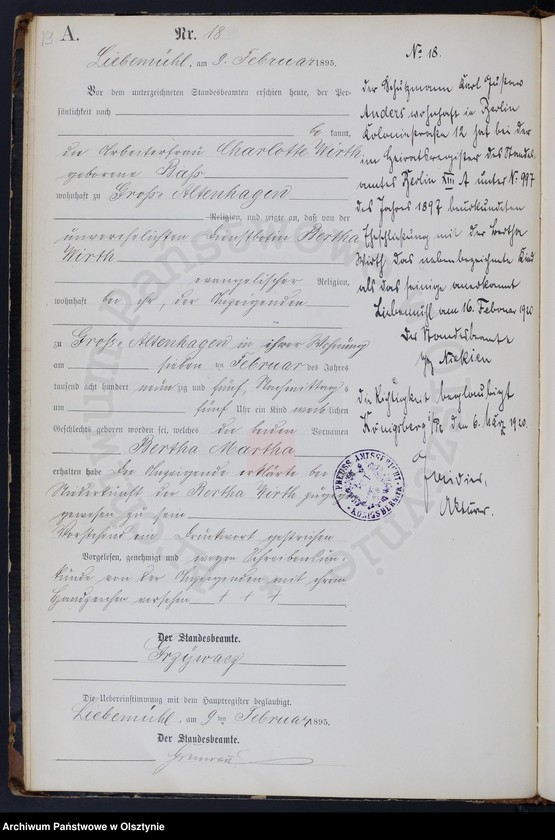 13
A.
Nr. 18
Liebemühl, am 9. Februar 1895.
Vor dem unterzeichneten Standesbeamten erschien heute, der Per-
sönlichkeit nach
be kannt,
die Arbeiterfrau Charlotte Wirth
geborene Bass
wohnhaft zu Groß-Altenhagen
Religion, und zeigte an, daß von der
unverehelichten Dienstbotin Bertha
Wirth
evangelischer Religion,
wohnhaft bei ihr, der Anzeigenden
zu Groß-Altenhagen in ihrer Wohnung
am sieben ten Februar des Jahres
tausend acht hundert neun zig und fünf, Nachmittags
um fünf Uhr ein Kind weib lichen
Geschlechts geboren worden sei, welches die beiden Vornamen
Bertha Martha
erhalten habe Die Anzeigende erklärte bei
Niederkunft der Bertha Wirth zugegen
gewesen zu sein
Vorstehend ein Druckwort gestrichen
Vorgelesen, genehmigt und wegen Schreibensun-
kunde von der Anzeigenden mit ihrem
Handzeichen versehen + + +
Der Standesbeamte.
Grzywacz
Die Uebereinstimmung mit dem Hauptregister beglaubigt.
Liebemühl, am 9 ten Februar 1895.
Der Standesbeamte.
No 18.
Der Schutzmann Karl Gustav
Anders wohnhaft in Berlin
Koloniestraße 12 hat bei der
im Heiratsregister des Standes-
amtes Berlin XIII A unter No 997
des Jahres 1897 beurkundeten
Eheschließung mit der Bertha
Wirth das nebenbezeichnete Kind
als das seinige anerkannt
Liebemühl am 16. Februar 1920
Der Standesbeamte
Die Richtigkeit beglaubigt
Königsberg Pr den 6. März 1920.
Aktuar.
PREUSS. AMTSGERICHT
KÖNIGSBERG PR.
Archiwum Państwowe w Olsztynie
Archiwum Państwowe w Olsztynie